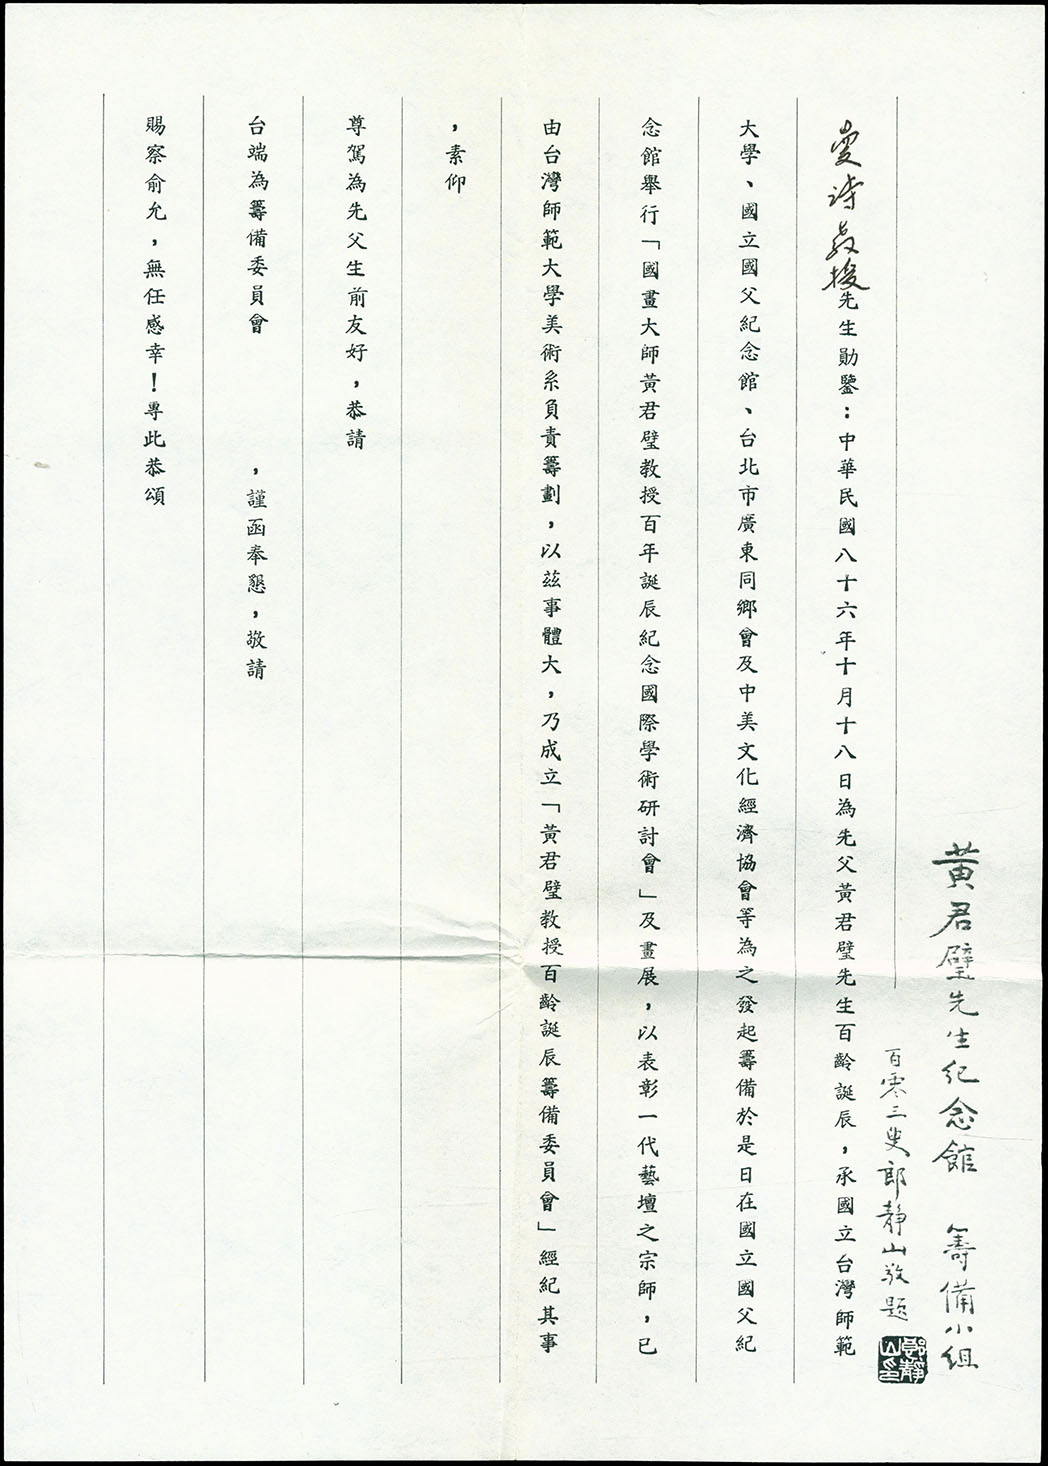 黃君璧先生紀念館 籌備小組
百零三叟郎靜山敬題
郎靜山印
曼詩教授先生勛鑒：中華民國八十六年十月十八日為先父黃君璧先生百齡誕辰，承國立台灣師範
大學、國立國父紀念館、台北市廣東同鄉會及中美文化經濟協會等為之發起籌備於是日在國立國父紀
念館舉行「國畫大師黃君璧教授百年誕辰紀念國際學術研討會」及畫展，以表彰一代藝壇之宗師，已
由台灣師範大學美術系負責籌劃，以茲事體大，乃成立「黃君璧教授百齡誕辰籌備委員會」經紀其事
，素仰
尊駕為先父生前友好，恭請
台端為籌備委員會　　　　，謹函奉懇，敬請
賜察俞允，無任感幸！專此恭頌